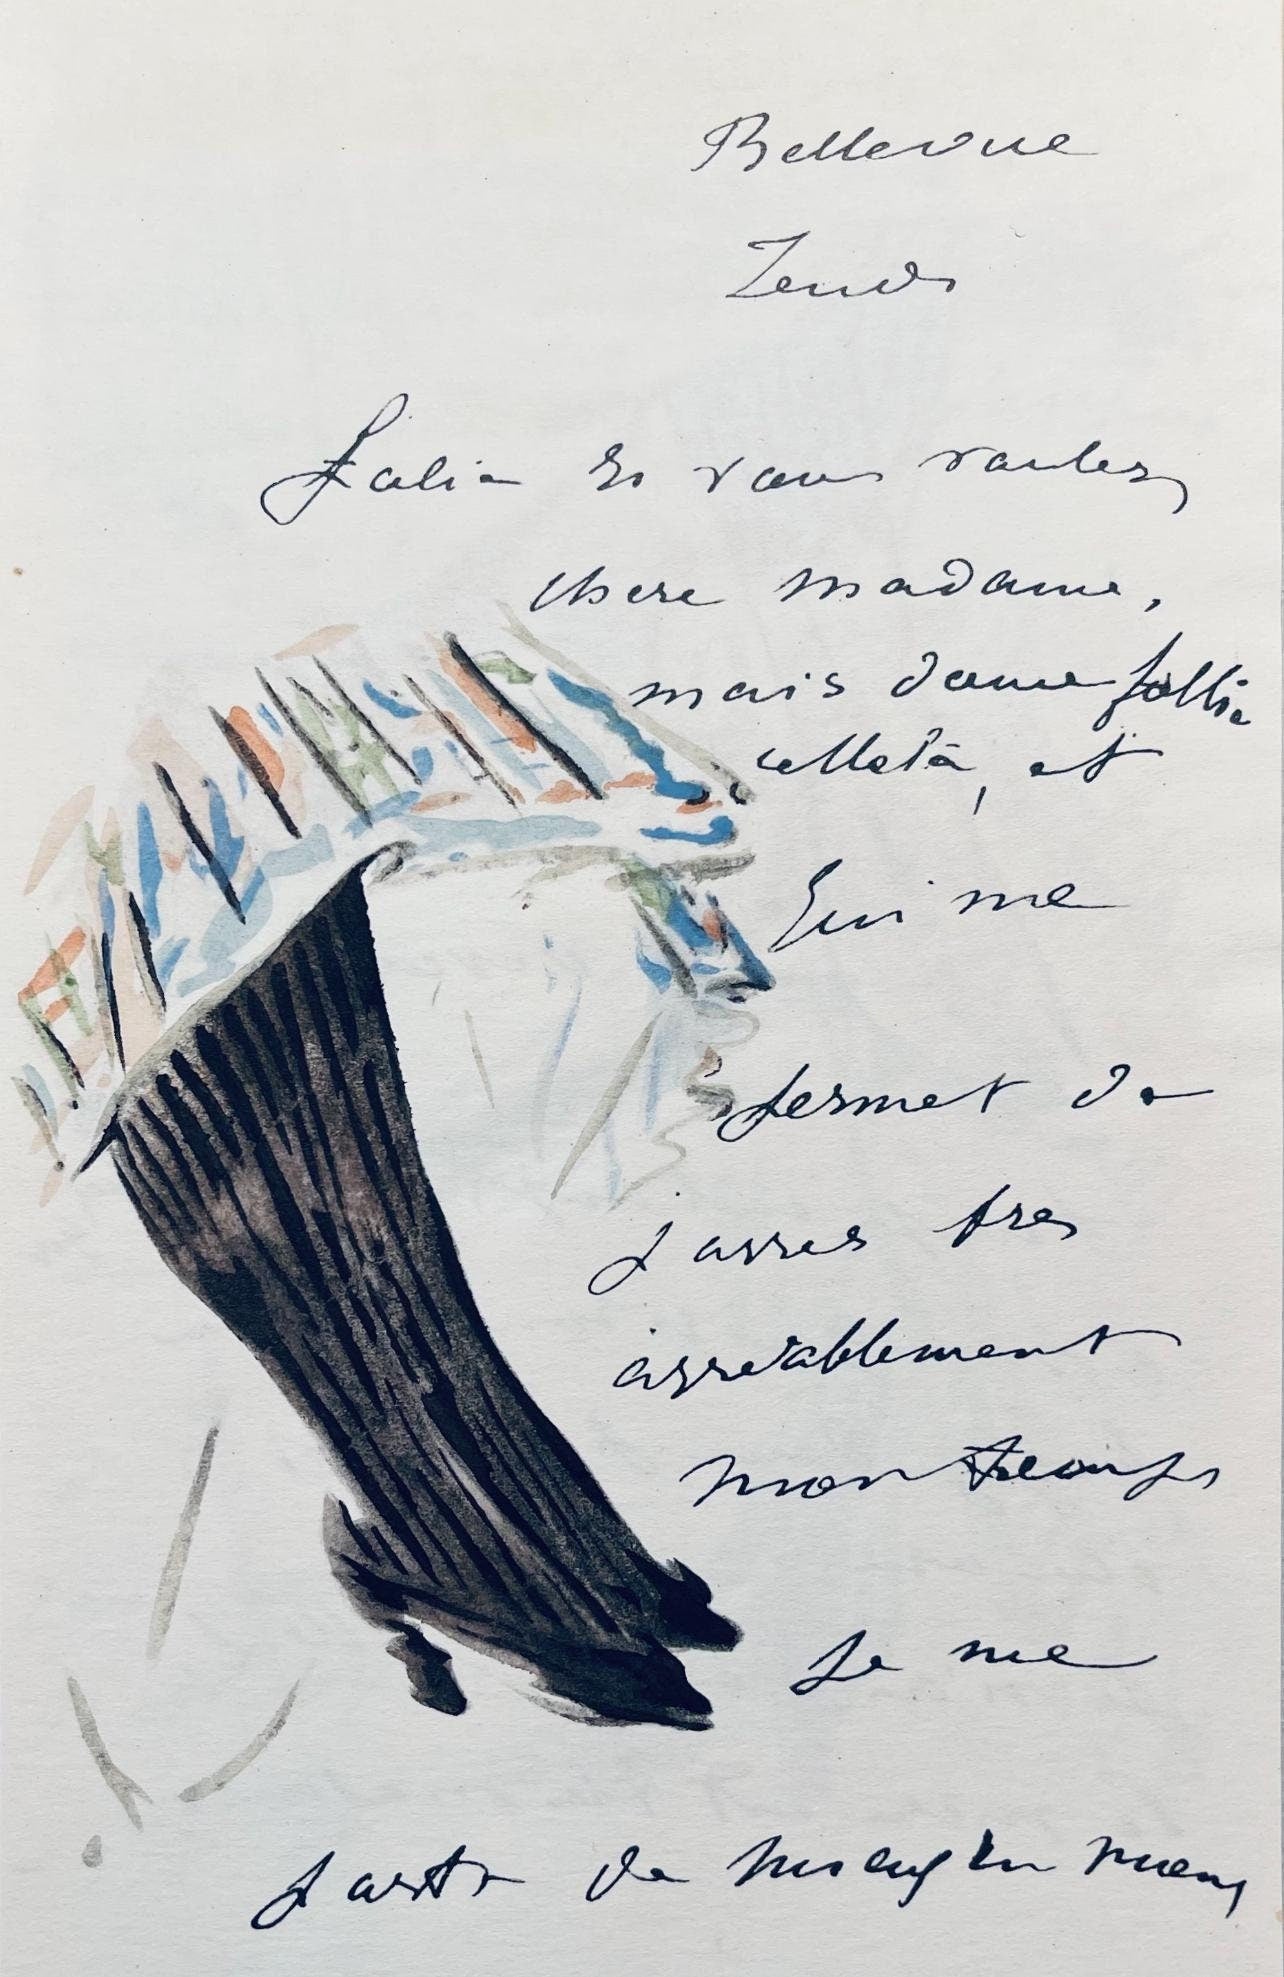 Bellevue
Jeudi
Folie si vous voulez,
chere madame,
mais douce folie
celle la, et
qui me
permet de
passer tres
agreablement
mon temps
Je me
porte de mieux en mieux